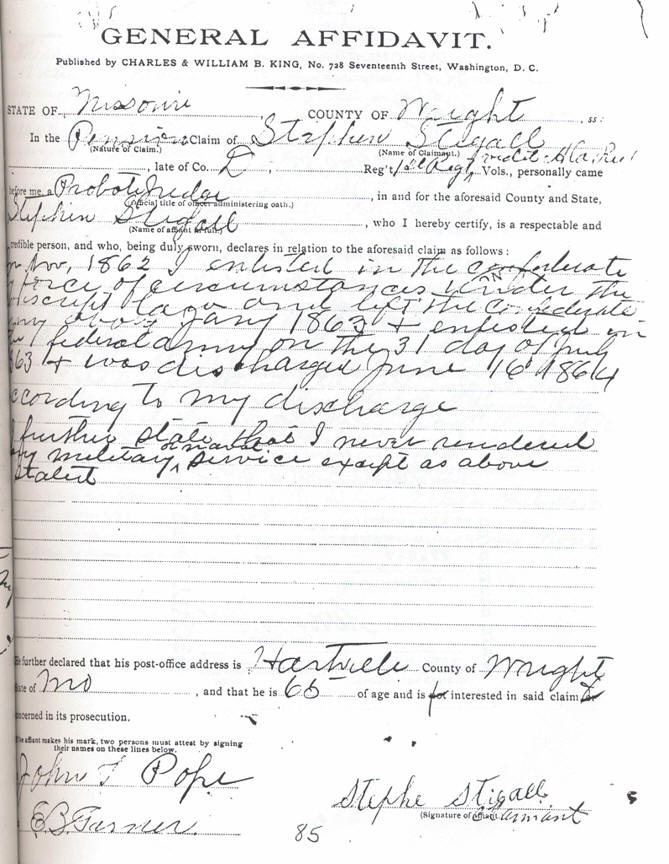 GENERAL AFFIDAVIT.
Published by CHARLES & WILLIAM B. KING, No. 728 Seventeenth Street, Washington, D. C.
STATE OF Missouri, COUNTY OF Wright, ss:
In the Pension Claim of Stephen Stigall
(Nature of Claim.) (Name of Claimant.)
, late of Co. D, Reg't 1st Regt, Vols., personally came
before me, a Probate Judge, in and for the aforesaid County and State,
(Official title of officer administering oath.)
Stephen Stigall, who I hereby certify, is a respectable and
(Name of affiant in full.)
credible person, and who, being duly sworn, declares in relation to the aforesaid claim as follows:
on Nov, 1862 I enlisted in the confederate
force of circumstances under the
conscript laws and left the Confederate
army about Jany 1863 & enlisted in
the federal army on the 31 day of July
1863 & was discharged June 16 1864
according to my discharge
I further state that I never rendered
any military or naval service except as above
stated
He further declared that his post-office address is Hartville County of Wright
State of Mo, and that he is 65 of age and is interested in said claim &
concerned in its prosecution.
If the affiant makes his mark, two persons must attest by signing
their names on these lines below.
John T Pope
E B Garner
Stephe Stigall
(Signature of Claimant
85